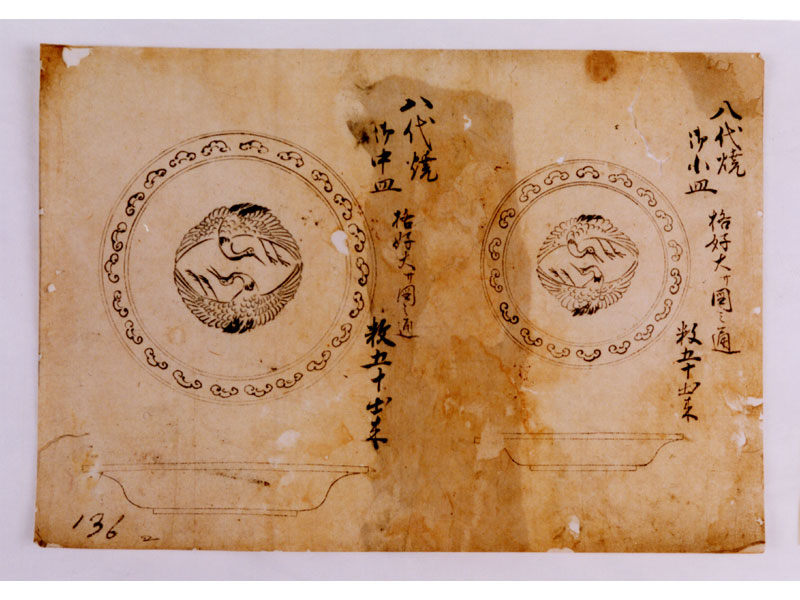 八代焼
御小皿
格好大サ圖之通
数五十出来
八代焼
御中皿
格好大サ圖之通
数五十出来
136